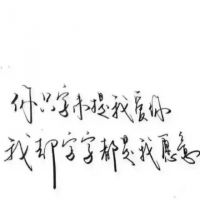 你只字未提我爱你
我却字字都是我愿意